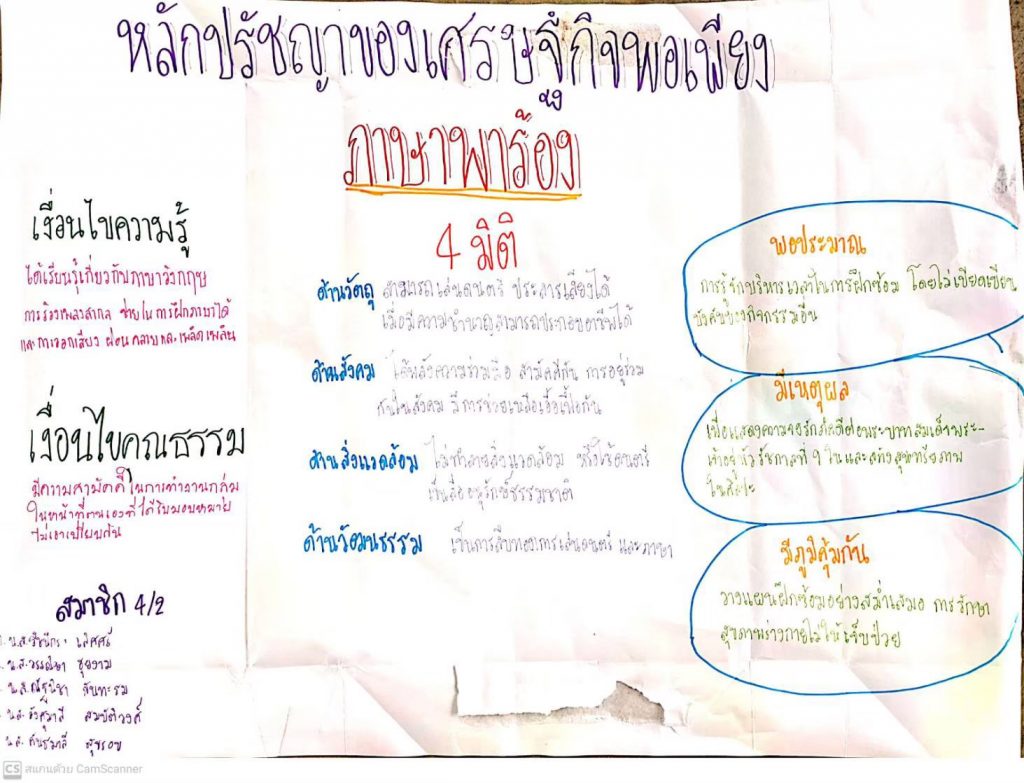 หลักปรัชญาของเศรษฐกิจพอเพียง
ภาษาพาร้อง
เงื่อนไขความรู้
ได้เรียนรู้เกี่ยวกับภาษาอังกฤษ
การร้องเพลงสากล ช่วยในการฝึกภาษาได้
และการออกเสียง ผ่อนคลายและเพลิดเพลิน
เงื่อนไขคุณธรรม
มีความสามัคคีในการทำงานกลุ่ม
ในหน้าที่ตนเองที่ได้รับมอบหมาย
ไม่เอาเปรียบกัน
4 มิติ
ด้านวัตถุ สามารถเล่นดนตรี ประสานเสียงได้
เมื่อมีความชำนาญสามารถประกอบอาชีพได้
ด้านสังคม ความร่วมมือ สามัคคีกัน การอยู่ร่วม
กันในสังคม มีการช่วยเหลือเอื้อเฟื้อกัน
ด้านสิ่งแวดล้อม ไม่ทำลายสิ่งแวดล้อม ใช้ดนตรี
เป็นสื่ออนุรักษ์ธรรมชาติ
ด้านวัฒนธรรม เป็นการสืบทอดการเล่นดนตรี และภาษา
พอประมาณ
การรู้จักบริหารเวลาในการฝึกซ้อม โดยไม่เบียดเบียน
ของกิจกรรมอื่น
มีเหตุผล
เพื่อแสดงความจงรักภักดีต่อพระบาทสมเด็จพระ-
เจ้าอยู่หัวรัชกาลที่ 9 ในและสร้างสุนทรียภาพ
ในศิลปะ
มีภูมิคุ้มกัน
วางแผนฝึกซ้อมอย่างสม่ำเสมอ การรักษา
สุขภาพร่างกายไม่ให้เจ็บป่วย
สมาชิก 4/2
น.ส. เลิศศรี
น.ส.วรรณิษา ชูยงาม
น.ส.ณัฐนิชา จันทะรม
น.ส. อังศุมาลี สมบัติวงศ์
น.ส. กันธมาลี
CS สแกนด้วย CamScanner